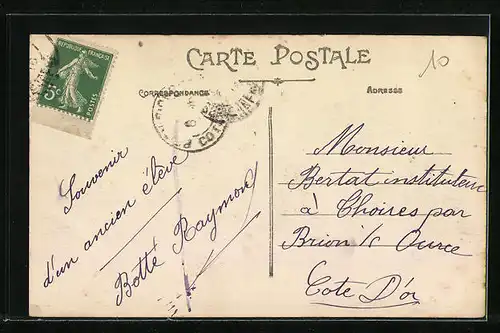 CARTE POSTALE
10
REPUBLIQUE FRANÇAISE
5c
POSTES
CORRESPONDANCE
ADRESSE
COTE
Souvenir
d'un ancien élève
Botté Raymond
Monsieur
Bertat instituteur
à Thoires par
Brion s/ Ource
Cote D'or